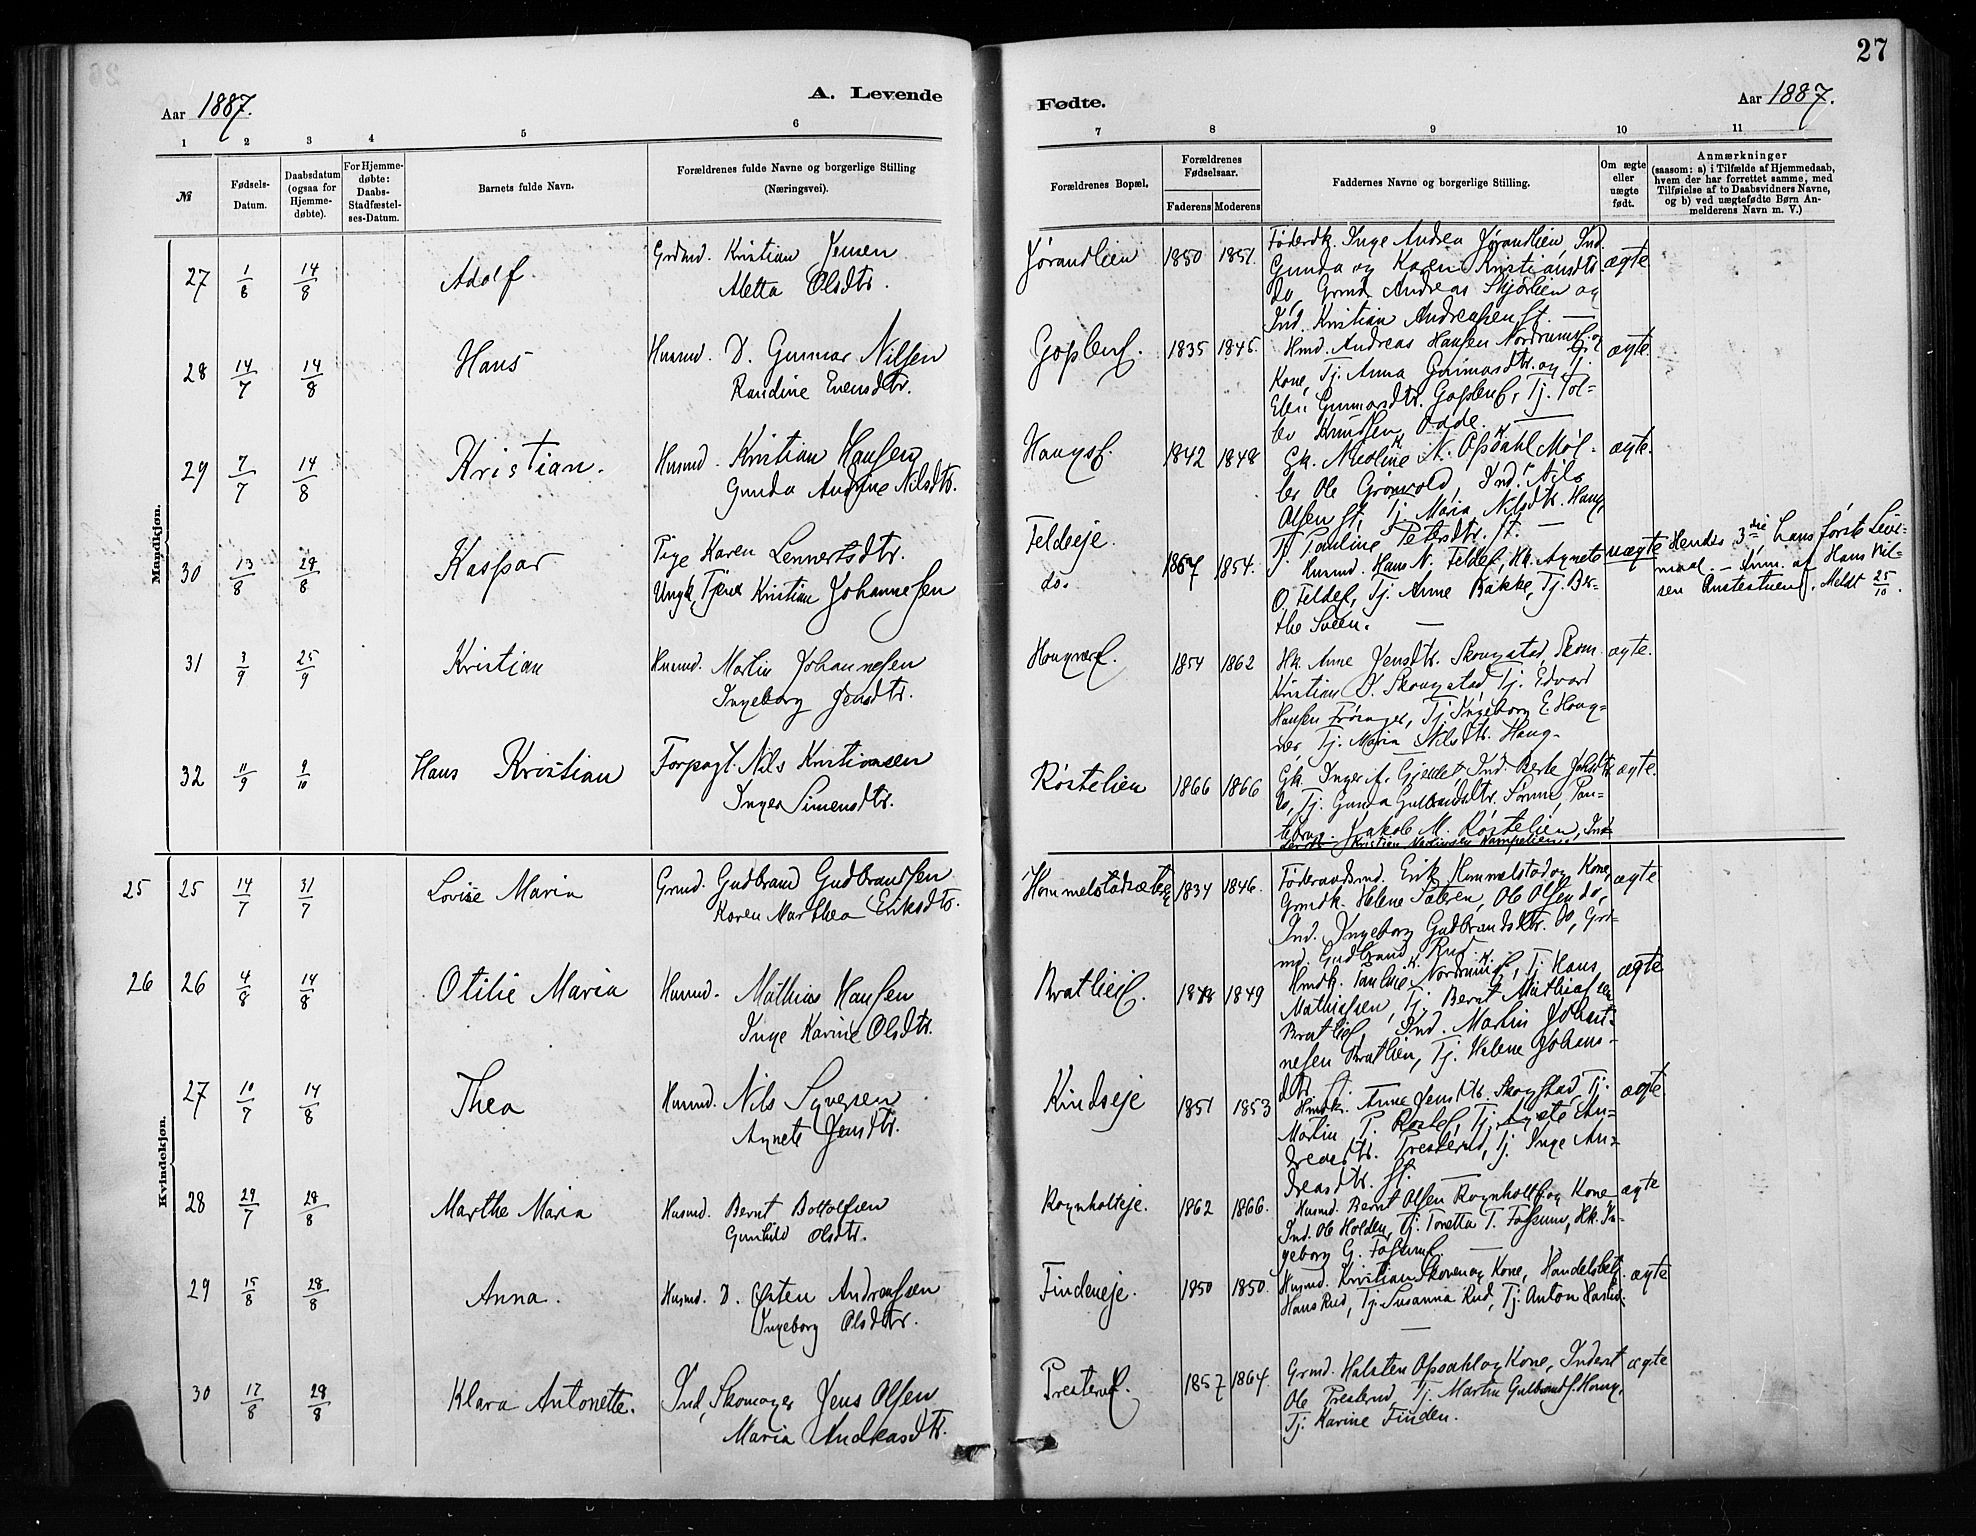 27
Aar 1887.
A. Levende
Fødte.
Aar 1887.
1 2 3 4 5 6 7 8 9 10 11
№
Fødsels-Datum.
Daabsdatum (ogsaa for Hjemme-døbte).
For Hjemme-døbte: Daabs-Stadfæstel-ses-Datum.
Barnets fulde Navn.
Forældrenes fulde Navne og borgerlige Stilling (Næringsvei).
Forældrenes Bopæl.
Forældrenes Fødselsaar.
Faderens Moderens
Faddernes Navne og borgerlige Stilling.
Om ægte eller uægte født.
Anmærkninger
(saasom: a) i Tilfælde af Hjemmedaab,
hvem der har forrettet samme, med
Tilføielse af to Daabsvidners Navne,
og b) ved uægtefødte Børn An-
melderens Navn m. V.)
Mandkjøn.
27 1/8 14/8 Adolf
Grdmd. Kristian Jensen
Metta Olsdtr.
Jørandlien 1850 1851.
Føderdk. Inge Andrea Jørandlien, Ind.
Gunda og Karen Kristiansdtr.
do, Grmd. Andreas Skjørlien og
Ind. Kristian Andreassen st. —
ægte
28 14/7 14/8 Hans
Husmd. D. Gunnar Nilsen
Randine Evensdtr.
1835 1845.
Hmd. Andreas Hansen og
Kone, Tj. Anna Gunnarsdtr. og Tj.
Gunnarsdtr. Tj. Tol-
lev Knudsen Odde. —
ægte
29 7/7 14/8 Kristian.
Husmd. Kristian Hansen
Gunda Andrine Nilsdtr.
1842 1848
Gk. Nicoline N. Opsahl Møl-
ler Ole Grønvold, Ind. Nils
Olsen st, Tj. Maria Nilsdtr. Haug,
Tj. Pauline Petersdtr. st. —
ægte.
30 13/8 28/8 Kaspar
Pige Karen Lennertsdtr.
Ungk, Tjener Kristian Johannesen
Feldeeje.
do.
1867 1854.
Husmd. Hans N. Hk. Agnete
O. Tj. Anne Bakke, Tj. Ber-
the Sveen. —
uægte
Hendes 3die hans første Leier-
maal. — Anm. af Hans Nil-
sen Meldt 25/10.
31 3/9 25/9 Kristian
Husmd. Martin Johannesen
Ingeborg Jensdtr.
1854 1862
Hk. Anne Jensdtr. Skougstad, Skom.
Kristian J. Skougstad, Tj. Edvard
Hansen Tj. Ingeborg E. Houg-
ner, Tj. Maria Nilsdtr. Haug.
ægte.
32 11/9 9/10 Hans Kristian
Forpagt. Nils Kristiansen
Inger Simensdtr.
Røstelien 1866 1866
Gk. Inger Ind. Berte
do, Tj. Gunda Gulbrandsdtr.
Jakob M. Røstelien, Ind.
Kristian
ægte.
Kvindekjøn.
25 25 14/7 31/7 Lovise Maria
Grmd. Gudbrand Gudbrandsen
Karen Marthea Eriksdtr.
1834 1846.
Føderaadsmd. Erik Hommelstad og Kone,
Grmdk. Helene Sæteren, Ole Olsen do,
Ind. Ingeborg Gudbrandsdtr. do, Grd-
md. Gudbrand Rud.
ægte
26 26 4/8 14/8 Otilie Maria
Husmd. Mathias Hansen
Inge Karine Olsdtr.
1848 1849
Hmdk. Pauline Tj. Hans
Mathiesen, Tj. Bernt Mathiasen
Ind. Martin Johan-
nesen Bratlien, Tj. Helene Johans-
dtr.
ægte
27 10/7 14/8 Thea
Husmd. Nils Syversen
Agnete Jensdtr.
Kindseje 1851 1853
Hmdk. Anne Jensdtr. Skogstad, Tj.
Martin P. Tj. Agnete An-
dreasdtr. Presterud, Tj. Inge An-
dreasdtr. st. —
ægte
28 29/7 28/8 Marthe Maria
Husmd. Bernt Bottolfsen
Gunhild Olsdtr.
Rognholteje. 1862 1866.
Husmd. Bernt Olsen og Kone
Ind. Ole Holden, Tj. Toretta T. Fossum, Hk. In-
geborg G. —
ægte
29 15/8 28/8 Anna.
Husmd. D. Østen Andreassen
Ingeborg Olsdtr.
Findeneje. 1850 1850.
Husmd. Kristian Skoven og Kone, Handelsbetj.
Hans Rud, Tj. Susanna Rud, Tj. Anton
—
ægte
30 17/8 28/8 Klara Antonette.
Ind, Skomager Jens Olsen
Maria Andreasdtr.
1857 1864.
Grmd. Halsten Opsahl og Kone, Inderst
Ole Presterud, Tj. Martin Gulbrands. Houg,
Tj. Karine Finden.
ægte